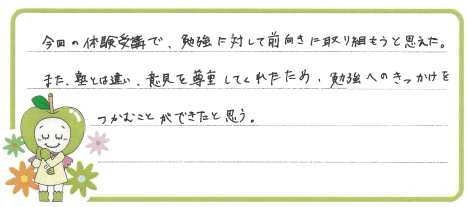 今回の体験受講で、勉強に対して前向きに取り組もうと思えた。
また、塾とは違い、意見を尊重してくれたため、勉強へのきっかけを
つかむことができたと思う。